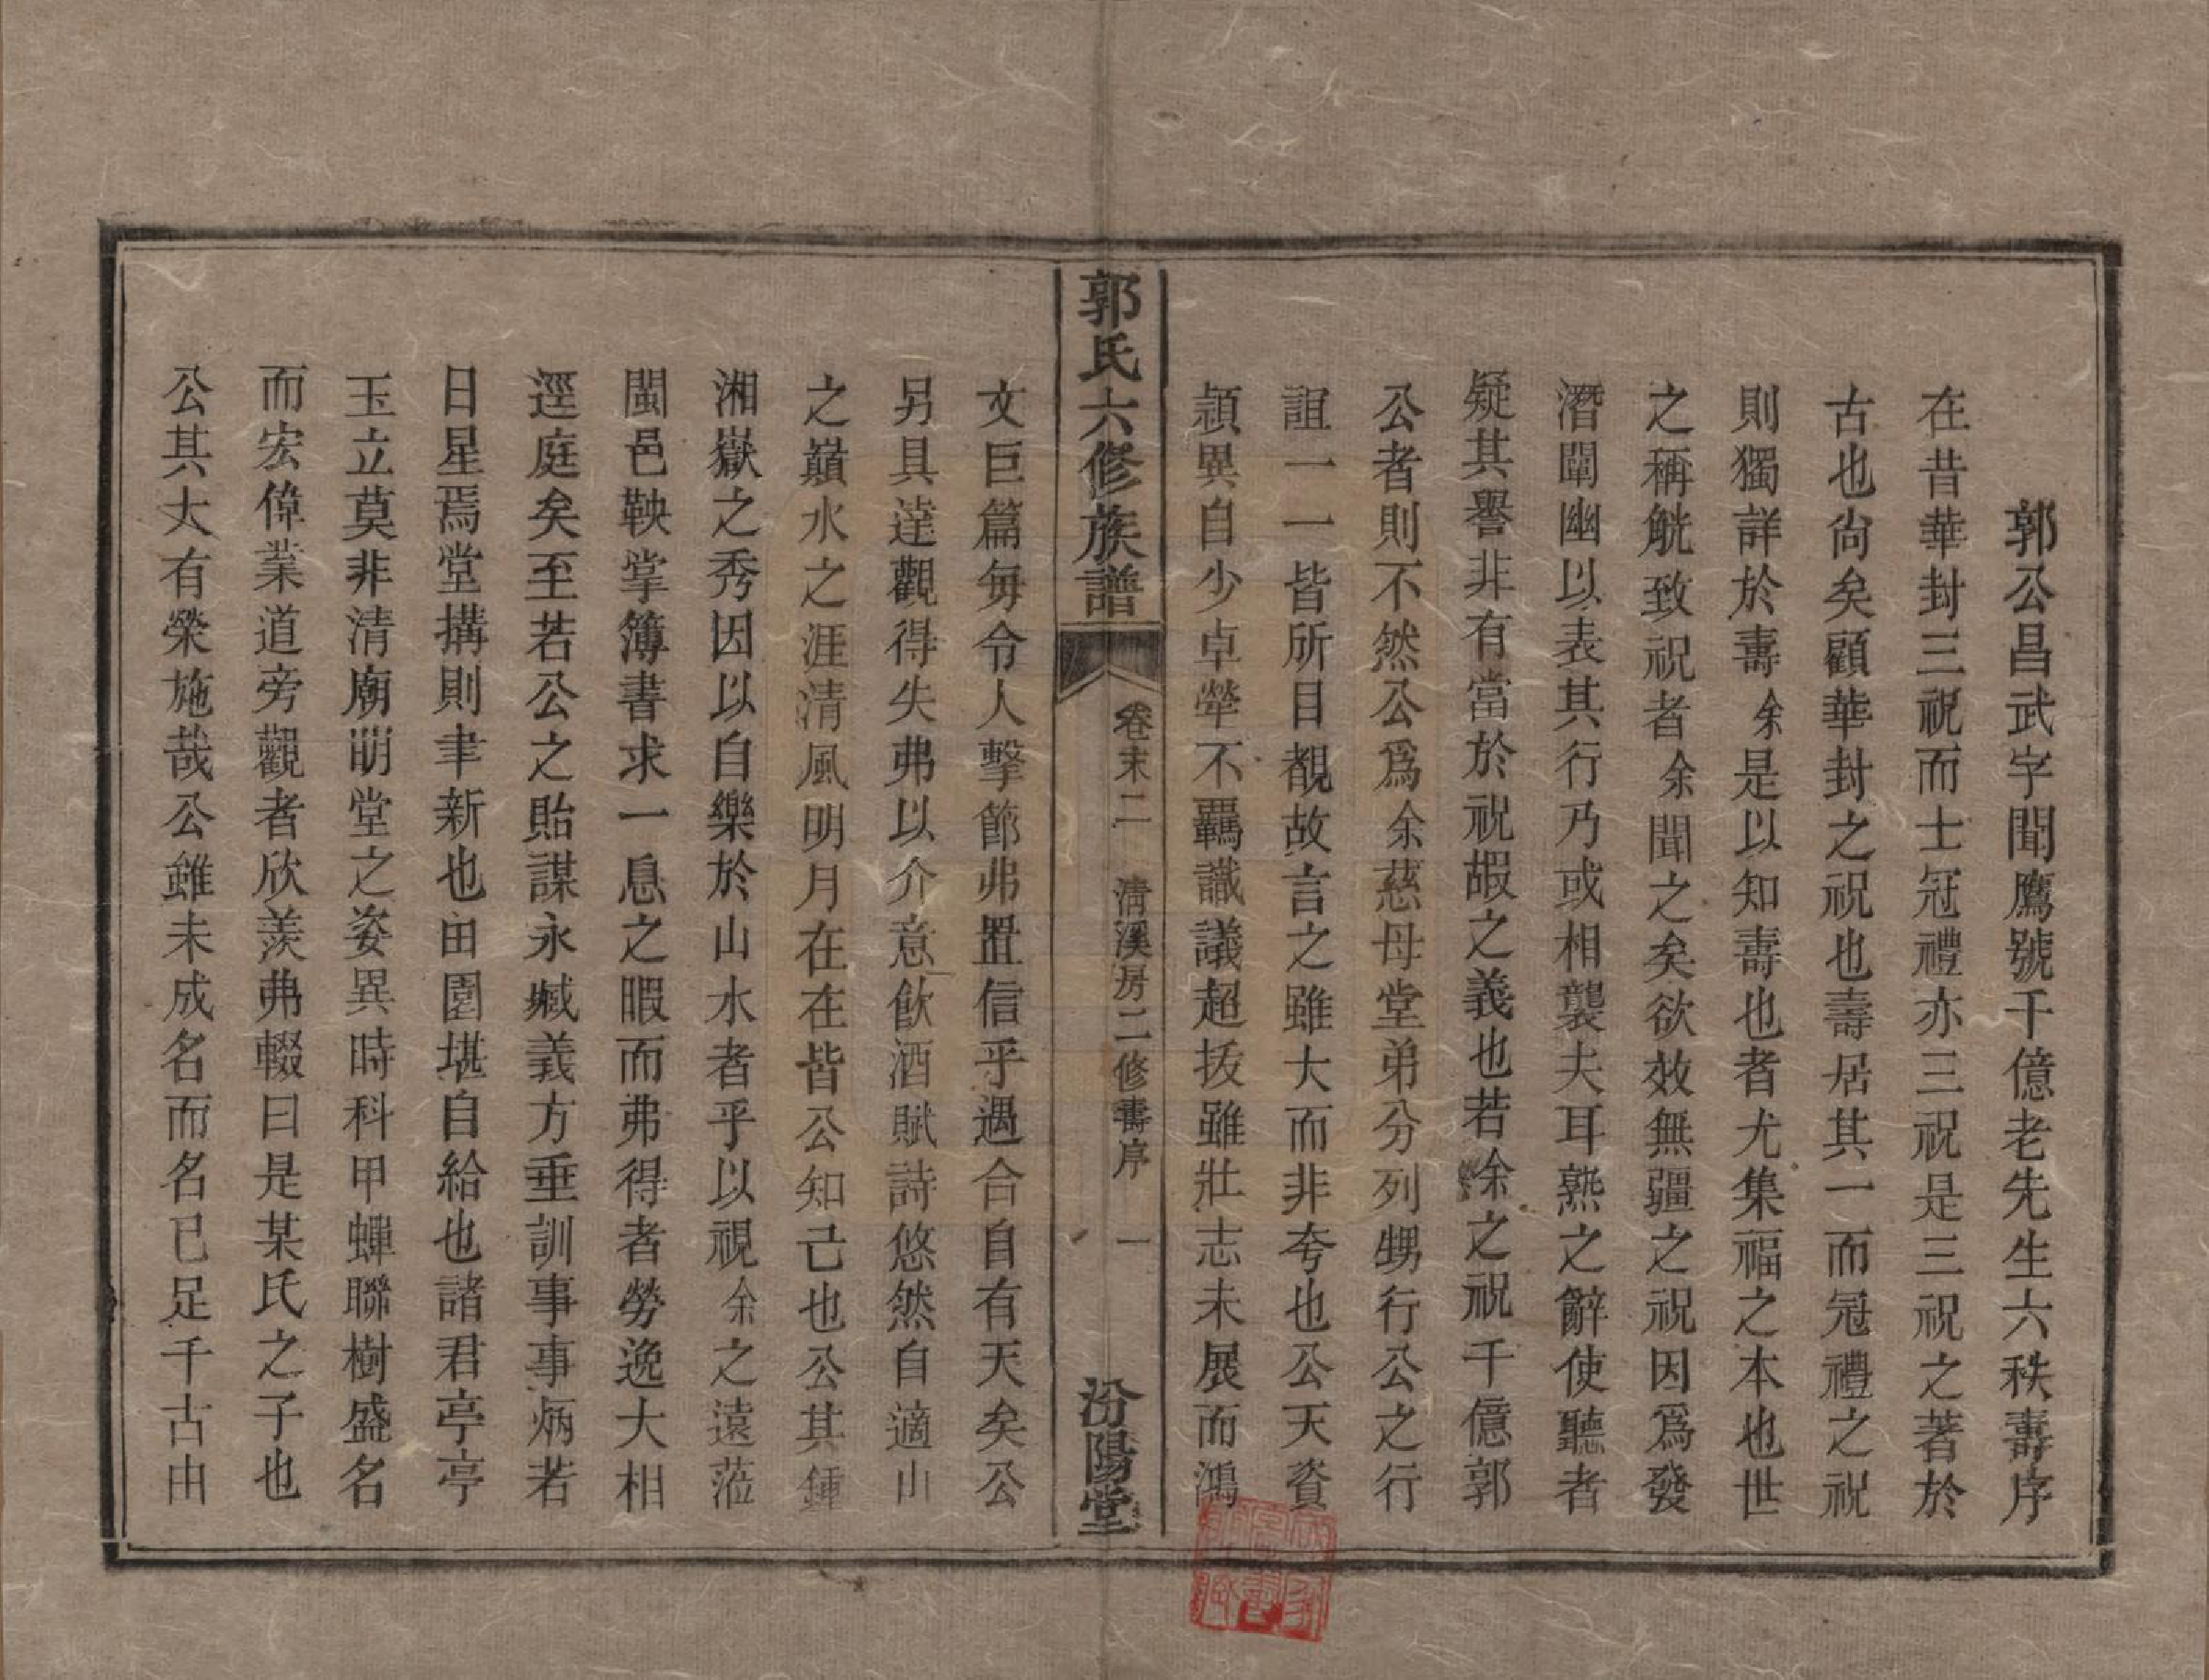 郭公昌武字聞鷹號千億老先生六秩壽序
在昔華封三祝而士冠禮亦三祝是三祝之著於
古也尙矣顧華封之祝也壽居其一而冠禮之祝
則獨詳於壽余是以知壽也者尤集福之本也世
之稱觥致祝者余聞之矣欲效無疆之祝因爲發
潛闡幽以表其行乃或相襲夫耳熟之辭使聽者
疑其譽非有當於祝嘏之義也若余之祝千億郭
公者則不然公爲余慈母堂弟分列甥行公之行
誼一一皆所目覩故言之雖大而非夸也公天資
穎異自少卓犖不羈讖議超拔雖壯志未展而鴻
郭氏六修族譜
卷末二 淸溪房二修壽序 一
汾陽堂
文巨篇每令人擊節弗置信乎遇合自有天矣公
另具達觀得失弗以介意飮酒賦詩悠然自適山
之巔水之涯清風明月在在皆公知己也公其鍾
湘嶽之秀因以自樂於山水者乎以視余之遠蒞
閩邑鞅掌簿書求一息之暇而弗得者勞逸大相
逕庭矣至若公之貽謀永臧義方垂訓事事炳若
日星焉堂搆則聿新也田園堪自給也諸君亭亭
玉立莫非清廟明堂之姿異時科甲蟬聯樹盛名
而宏偉業道旁觀者欣羨弗輟曰是某氏之子也
公其大有榮施哉公雖未成名而名已足千古由